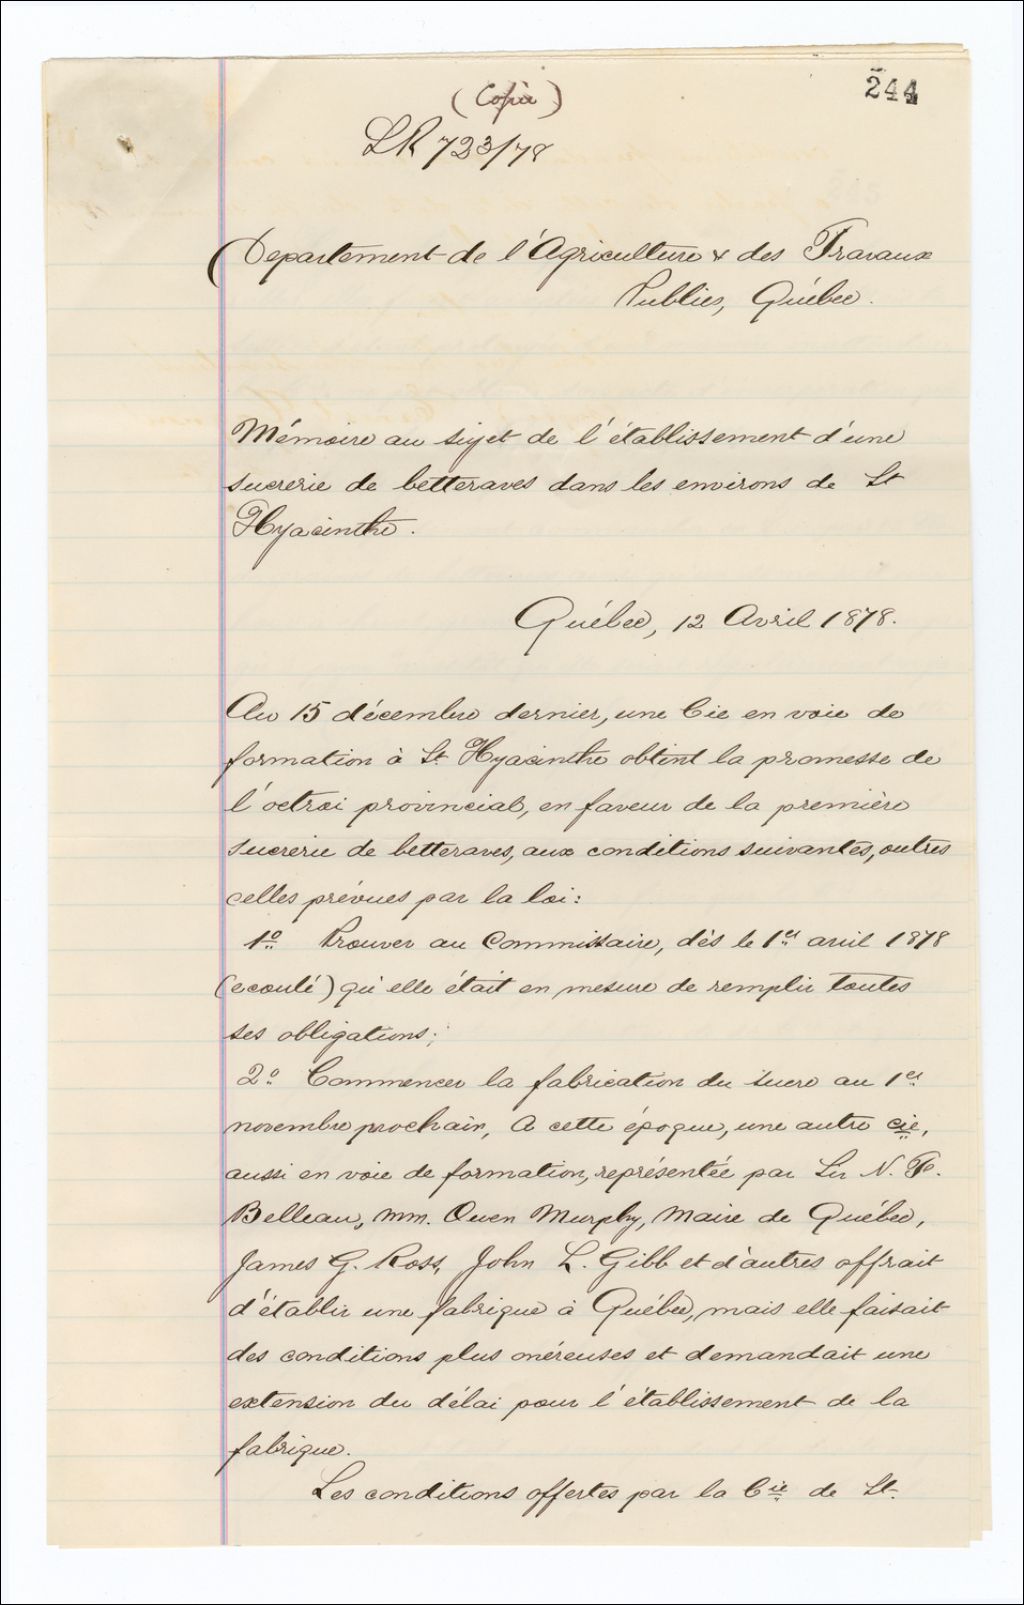 244
(Copie)
LR 723/78
Département de l'Agriculture & des Travaux
Publics, Québec.
Mémoire au sujet de l'établissement d'une
sucrerie de betteraves dans les environs de St
Hyacinthe.
Québec, 12 Avril 1878.
Au 15 décembre dernier, une Cie en voie de
formation à St Hyacinthe obtint la promesse de
l'octroi provincial, en faveur de la première
sucrerie de betteraves, aux conditions suivantes, outres
celles prévues par la loi:
1º Prouver au Commissaire, dès le 1er avril 1878
(ecoulé) qu'elle était en mesure de remplir toutes
ses obligations;
2º Commencer la fabrication du sucre au 1er
novembre prochain, A cette époque, une autre cie,
aussi en voie de formation, représentée par Sir N. F.
Belleau, MM. Owen Murphy, Maire de Québec,
James G. Ross, John L. Gibb et d'autres offrait
d'établir une fabrique à Québec, mais elle faisait
des conditions plus onéreuses et demandait une
extension du délai pour l'établissement de la
fabrique.
Les conditions offertes par la Cie de St-